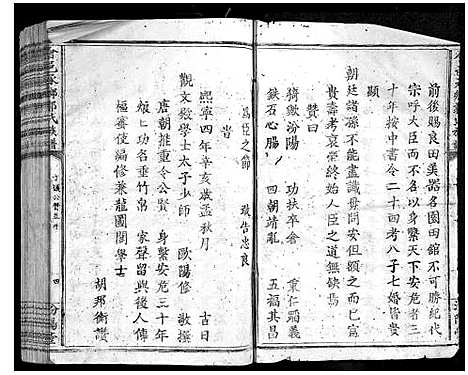 前後賜良田美器名園田館不可勝紀代
宗呼大臣而不名以身繫天下安危者二
十年按中書令二十四考八子七婿皆貴
顯
朝廷諸孫不能盡識每問安但頷之而已
貴壽考哀榮終始人臣之道無缺焉
贊曰
猗歟汾陽 功扶卒倉 秉仁蹈義
鉄石心腸 四朝靖亂 五福其昌
為臣之節 敬告忠良
旹
熙寧四年辛亥歲孟秋月 吉日
觀文殿學士太子少師 歐陽修 敬撰
唐朝推重令公賢 身繫安危三十年
殷殷功名垂竹帛 家聲留與後人傳
樞密使編修兼龍圖閣學士
胡邦衡讚
郭氏族譜
四
汾陽堂